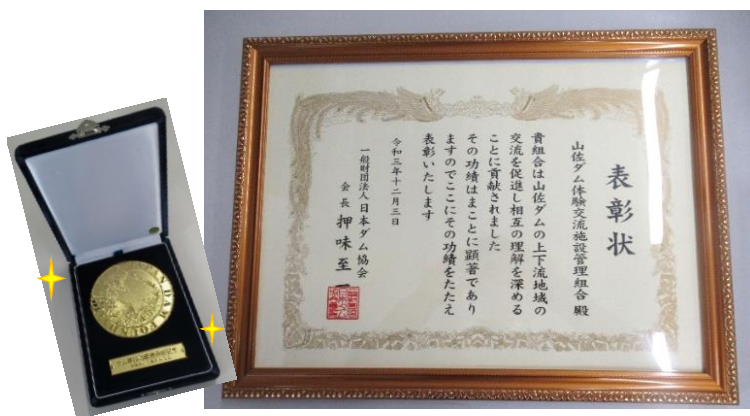 表彰状
山佐ダム体験交流施設管理組合 殿
貴組合は山佐ダムの上下流地域の
交流を促進し相互の理解を深める
ことに貢献されました
その功績はまことに顕著であり
ますのでここにその功績をたたえ
表彰いたします
令和三年十二月三日
一般財団法人日本ダム協会
会長 押味至一